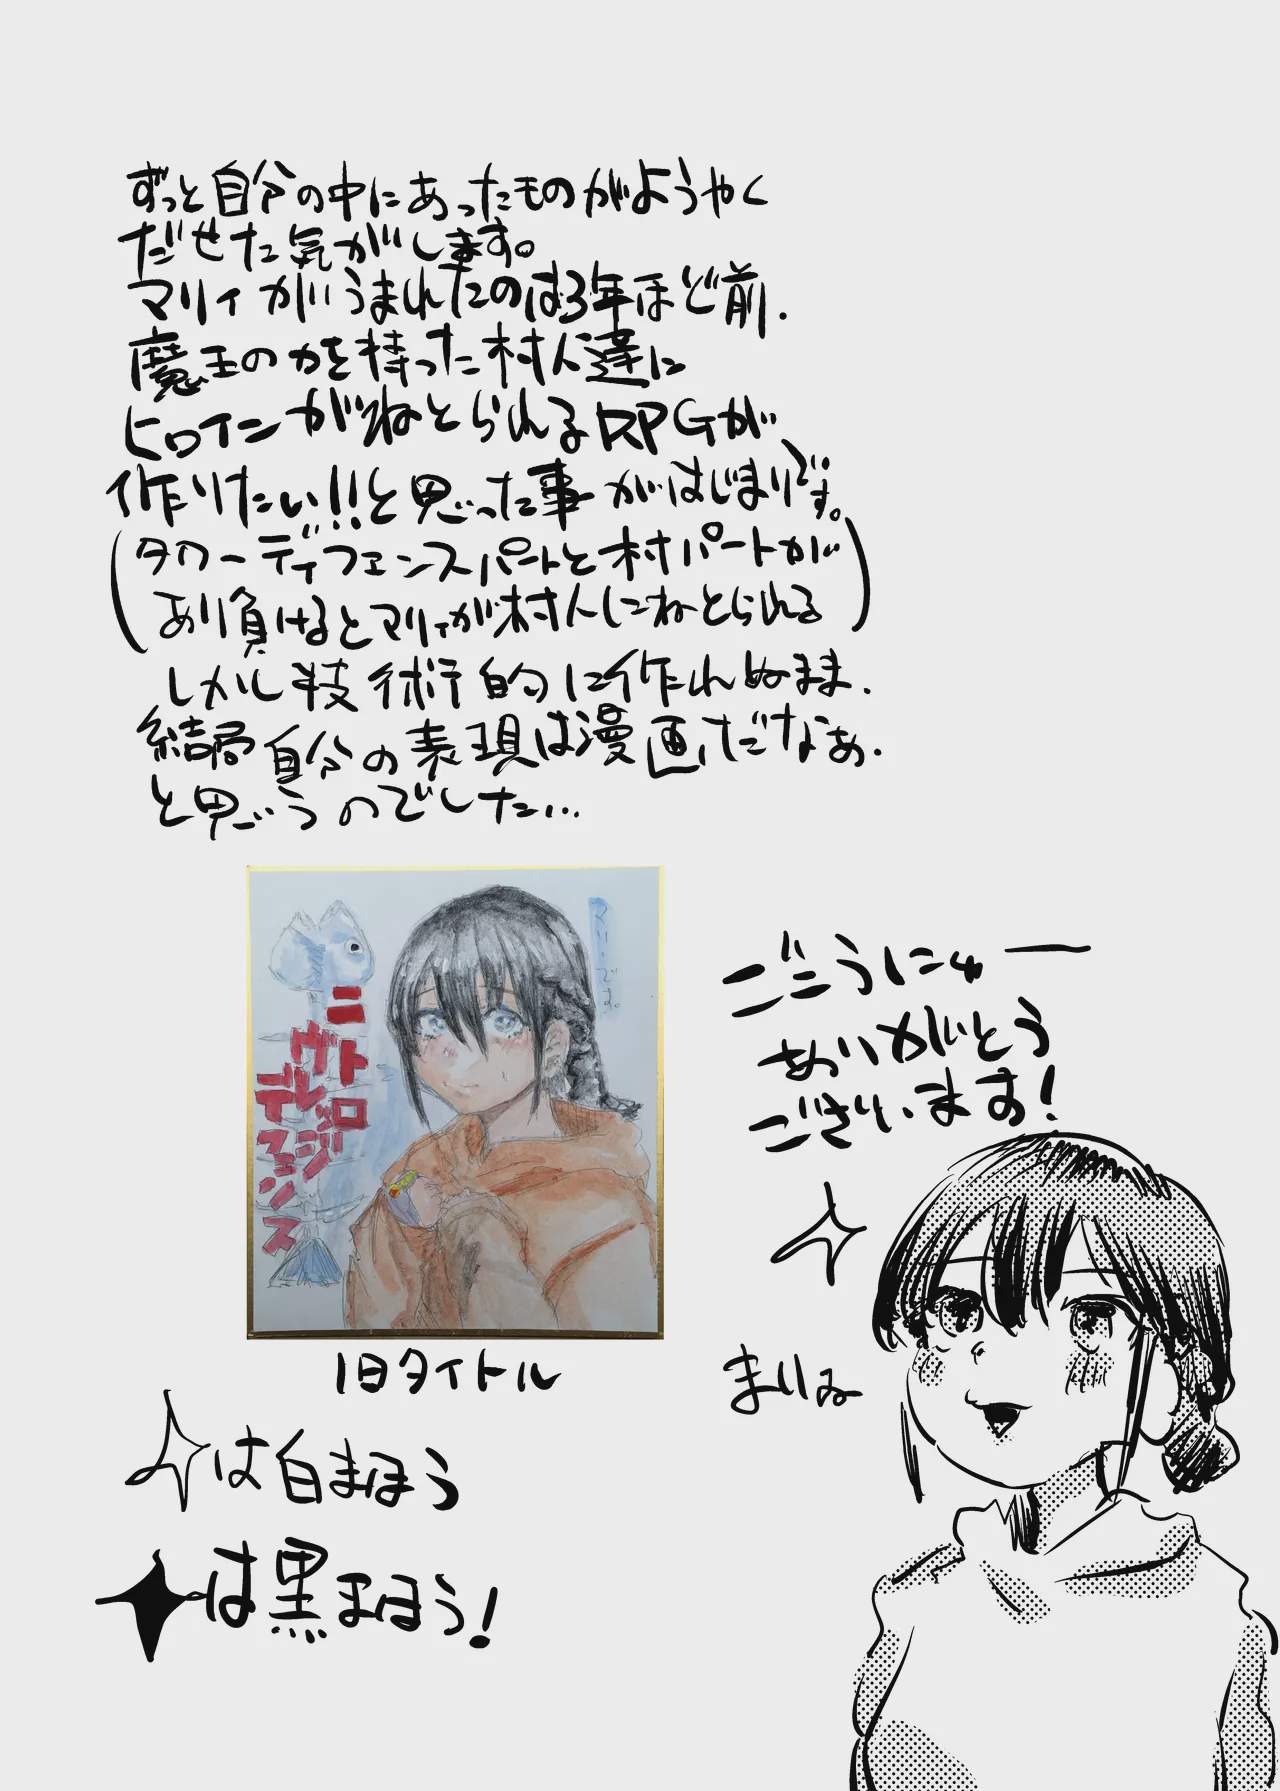 ずっと自分の中にあったものがようやく
だせた気がします。
マリィがうまれたのは3年ほど前.
魔王の力を持った村人達に
ヒロインがねとられるRPGが
作りたい!!と思った事がはじまりです。
(タワーディフェンスパートと村パートが
あり負けるとマリィが村人にねとられる)
しかし技術的に作れぬまま.
結局自分の表現は漫画だなぁ.
と思うのでした…
マリーです。
ニトロ
ヴィレッジ
デフェンス
旧タイトル
ごこうにゅー
ありがとう
ございます!
まりゐ
は白まほう
は黒まほう!